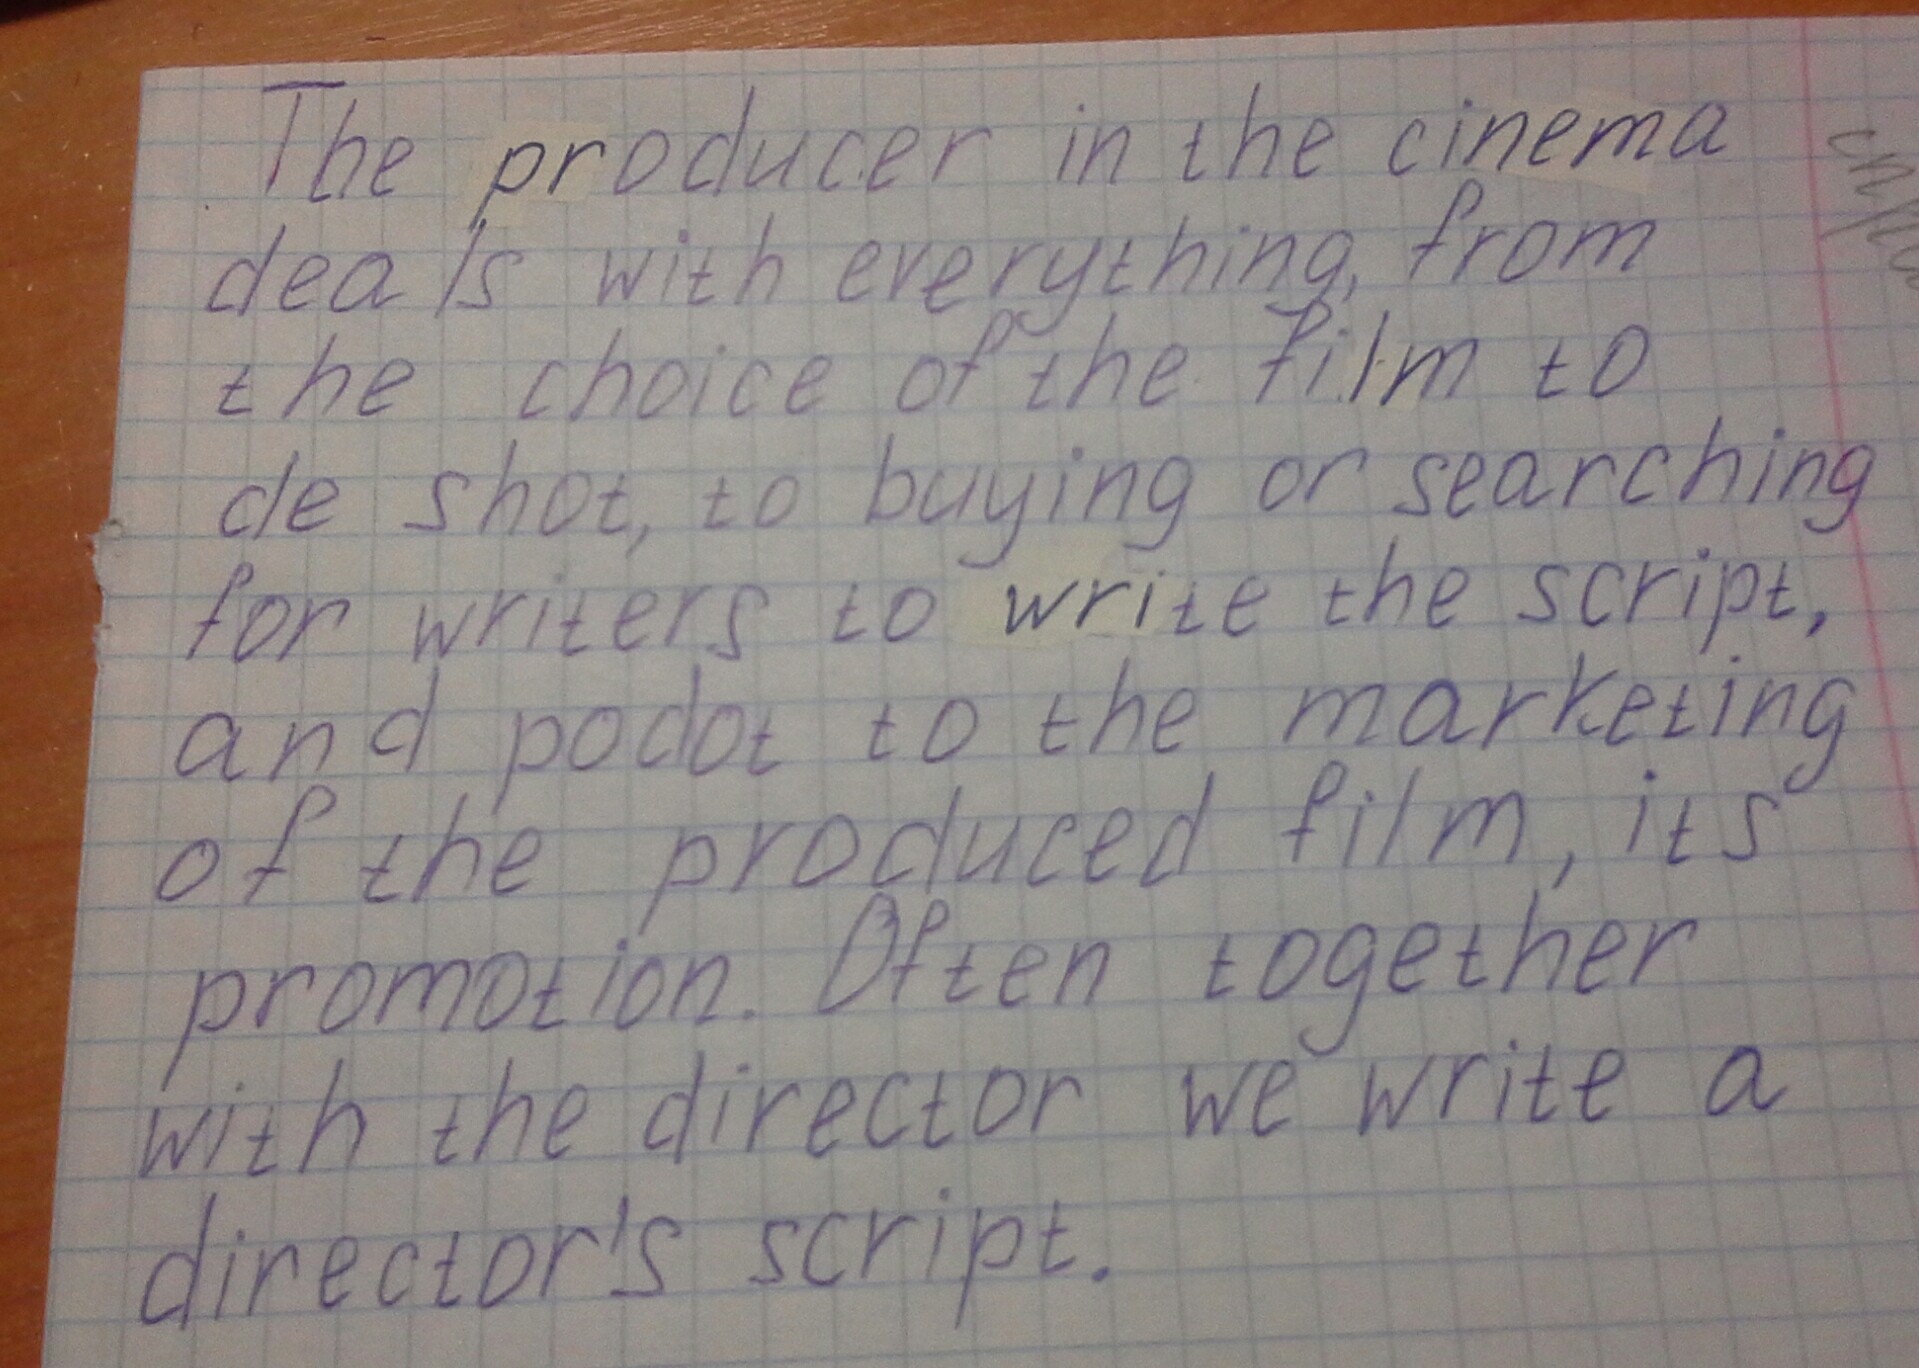 The producer in the cinema
deals with everything, from
the choice of the film to
de shot, to buying or searching
for writers to write the script,
and podot to the marketing
of the produced film, its
promotion. Often together
with the director we write a
director's script.